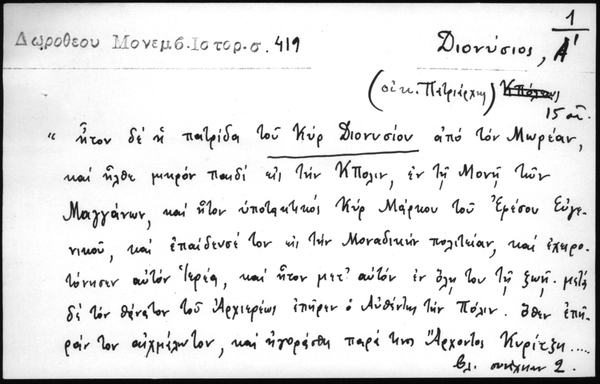 1
Δωροθέου Μονεμβ. Ιστορ. σ. 419
Διονύσιος, Α'
(οἰκ. Πατριάρχης)
15 αἰ.
" ἦτον δέ ἡ πατρίδα τοῦ Κύρ Διονυσίου ἀπό τόν Μωρέαν,
καί ἦλθε μικρόν παιδί εἰς τήν ΚΠολιν, ἐν τῇ Μονῇ τῶν
Μαγγάνων, καί ἦτον ὑποτακτικός Κύρ Μάρκου τοῦ Ἐφέσου Εὐγε-
νικοῦ, καί ἐπαίδευσέ τον εἰς τήν Μοναδικήν πολιτείαν, καί ἐχειρο-
τόνησεν αὐτόν Ἱερέα, καί ἦτον μετ' αὐτόν ἐν ὅλῃ του τῇ ζωῇ. μετά
δέ τόν θάνατον τοῦ Ἀρχιερέως ἐπῆρεν ὁ Αὐθέντης τήν Πόλιν. ὅθεν ἐπῆ-
ράν τον αἰχμάλωτον, καί ἠγοράσθη παρά τινος Ἄρχοντος Κυρίτζη.....
βλ. συνέχειαν 2.